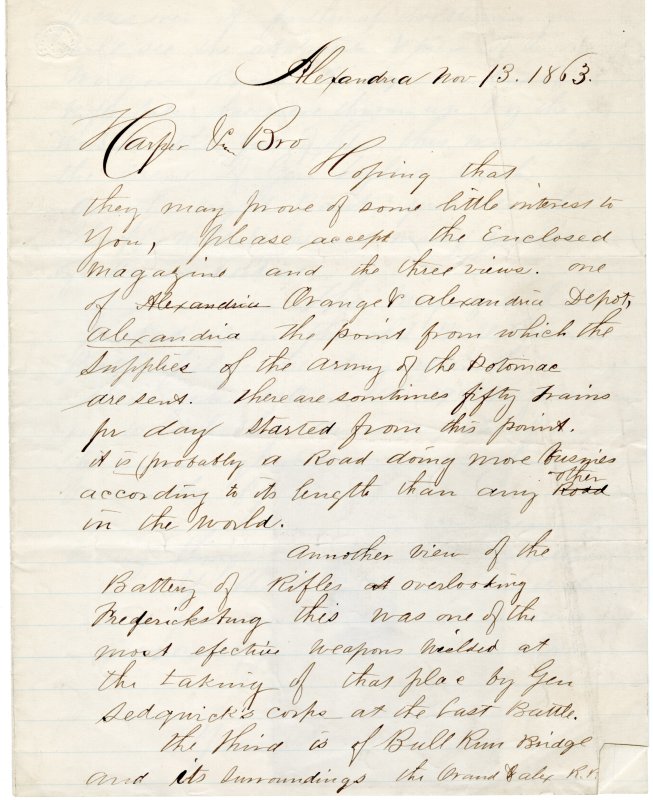 Alexandria Nov 13. 1863.
Harper & Bro
Hoping that
they may prove of some little interest to
You, please accept the Enclosed
Magazine and the three views. one
of Alexandria Orange & alexandria Depot,
alexandria the point from which the
Supplies of the army of the Potomac
are sent. there are somtimes fifty trains
pr day started from this point.
it is probably a Road doing more busnies
according to its length than any other Road
in the world.
annother view of the
Battery of Rifles at overlooking
Fredericksburg this was one of the
most efective weapons wielded at
the taking of that place by Gen
Sedgwick's corps at the Last Battle.
the third is of Bull Run Bridge
and its surroundings the Orand & alex R.R